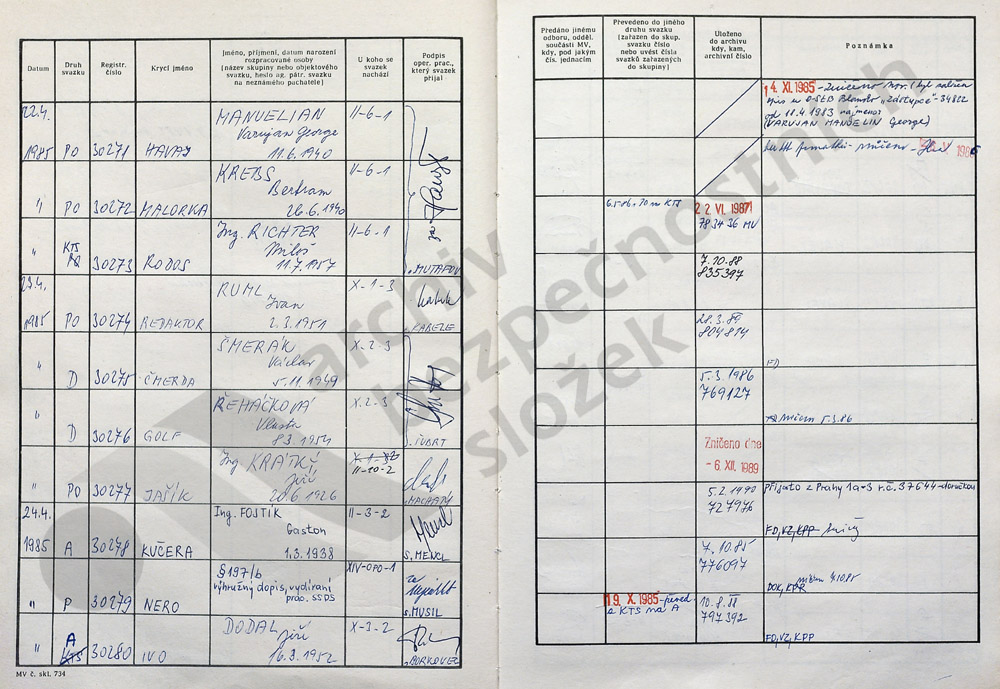 Datum
Druh
svazku
Registr.
číslo
Krycí jméno
Jméno, příjmení, datum narození
rozpracované osoby
(název skupiny nebo objektového
svazku, heslo ag. pátr. svazku
na neznámého pachatele)
U koho se
svazek
nachází
Podpis
oper. prac.,
který svazek
přijal
22.4.
1985 PO 30271 HAVAJ
MANUELIAN
Varujan George
11.6.1940
II-6-1
" PO 30272 MALORKA
KREBS
Bertram
26.6.1940
II-6-1
" KTS
30273 RODOS
Ing. RICHTER
Miloš
11.7.1957
II-6-1
s. MUTAFOV
23.4.
1985 PO 30274 REDAKTOR
RUML
Ivan
2.3.1951
X-1-3
KABELE
" D 30275 ČMERDA
SMERÁK
Václav
5.11.1949
X-2-3
" D 30276 GOLF
ŘEHÁČKOVÁ
Vlasta
8.3.1954
X-2-3
" PO 30277 JAŠÍK
Ing. KRÁTKÝ
Jiří
20.6.1926
II-10-2
24.4.
1985 A 30278 KUČERA
Ing. FOJTÍK
Gaston
1.3.1938
II-3-2
S. MENCL
" P 30279 NERO
§197/b
výhružný dopis, vydírání
prac. SSPS
XIV-OPO-1
S. MUSIL
" A
KTS 30280 IVO
DODAL
Jiří
16.3.1952
X-3-2
BORKOVEC
MV č. skl. 734
Předáno jinému
odboru, odděl.
součásti MV,
kdy, pod jakým
čís. jednacím
Převedeno do jiného
druhu svazku
(zařazen do skup.
svazku číslo
nebo uvést čísla
svazků zařazených
do skupiny)
Uloženo
do archivu
kdy, kam,
archivní číslo
Poznámka
14. XI. 1985 - zničeno
"zástupce" - 34822
od 18.4.1983 na jméno:
(VARUJAN MANUELIN George)
zničeno
22 VI. 1987
783436 MV
7.10.88
835397
28.3.89
804814
FD
5.3.1986
769127
zničen 5.3.86
Zničeno dne
- 6. XII. 1989
5.2.1990
727976
přijato z Prahy 1a+3 r.č. 37644
FD, VZ, KPP
7.10.85
776097
DOK, KPR
19. X. 1985 - převed.
z KTS na A
10.8.88
797392
FD, VZ, KPP
archiv
bezpečnostních
složek